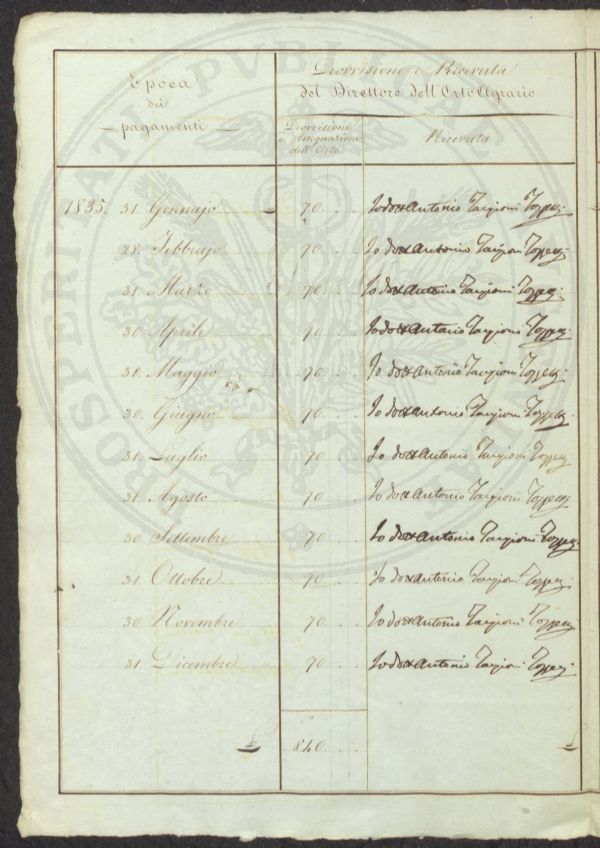 Epoca
dei
pagamenti
Provvisione e Ricevuta
del Direttore dell'Orto Agrario
Provvisioni
e Assegnazioni
dell'Orto
Ricevuta
1835. 31. Gennajo 70. Io dott Antonio Targioni Tozzetti
28. Febbrajo 70. Io dott Antonio Targioni Tozzetti
31. Marzo 70. Io dott Antonio Targioni Tozzetti
30. Aprile 70. Io dott Antonio Targioni Tozzetti
31. Maggio 70. Io dott Antonio Targioni Tozzetti
30. Giugno 70. Io dott Antonio Targioni Tozzetti
31. Luglio 70. Io dott Antonio Targioni Tozzetti
31. Agosto 70. Io dott Antonio Targioni Tozzetti
30. Settembre 70. Io dott Antonio Targioni Tozzetti
31. Ottobre 70. Io dott Antonio Targioni Tozzetti
30. Novembre 70. Io dott Antonio Targioni Tozzetti
31. Dicembre 70. Io dott Antonio Targioni Tozzetti
£ 840. £
PROSPERITATI PUBLICAE